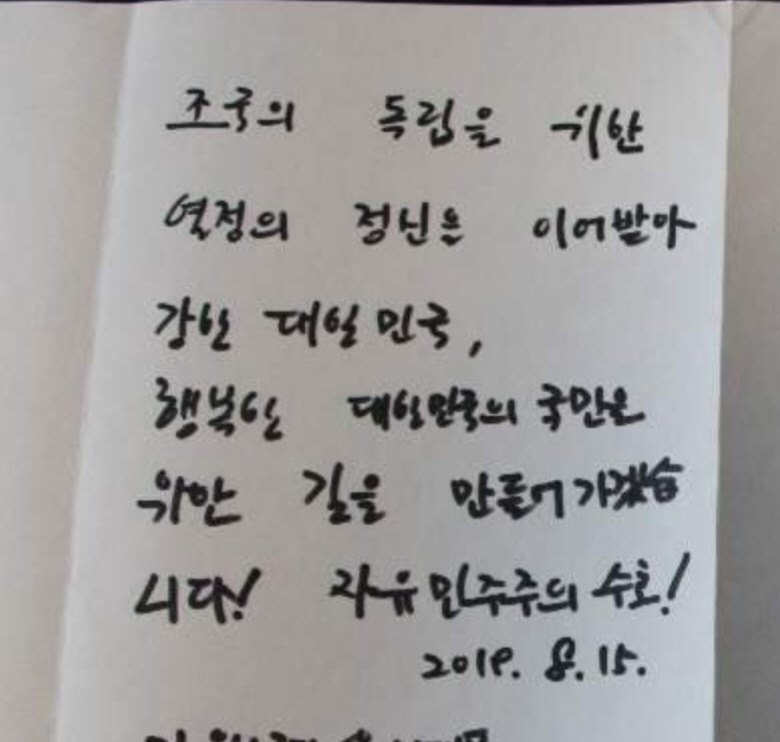 조국의 독립을 위한
열정의 정신을 이어받아
강한 대한민국,
행복한 대한민국의 국민을
위한 길을 만들어 가겠습
니다! 자유민주주의 수호!
2019. 8. 15.